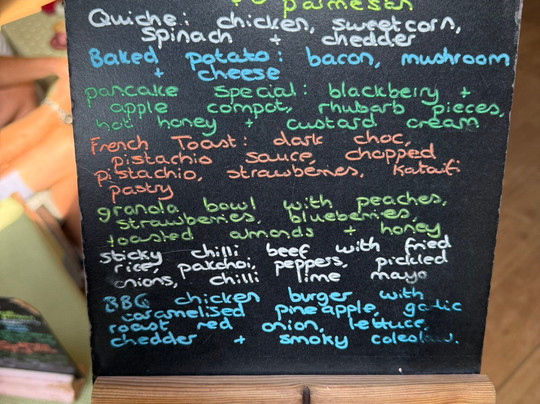 + parmesan
Quiche: chicken, sweetcorn,
spinach + chedder
Baked potato: bacon, mushroom
+ cheese
pancake special: blackberry +
apple compot, rhubarb pieces,
hot honey + custard cream
French Toast: dark choc,
pistachio sauce, chopped
pistachio, strawberries, Kataifi
pastry
granola bowl with peaches,
strawberries, blueberries,
toasted almonds + honey
sticky chilli beef with fried
rice, pakchoi, peppers, pickled
onions, chilli lime mayo
BBQ chicken burger with
caramelised pineapple, garlic
roast red onion, lettuce,
chedder + smoky coleslaw.